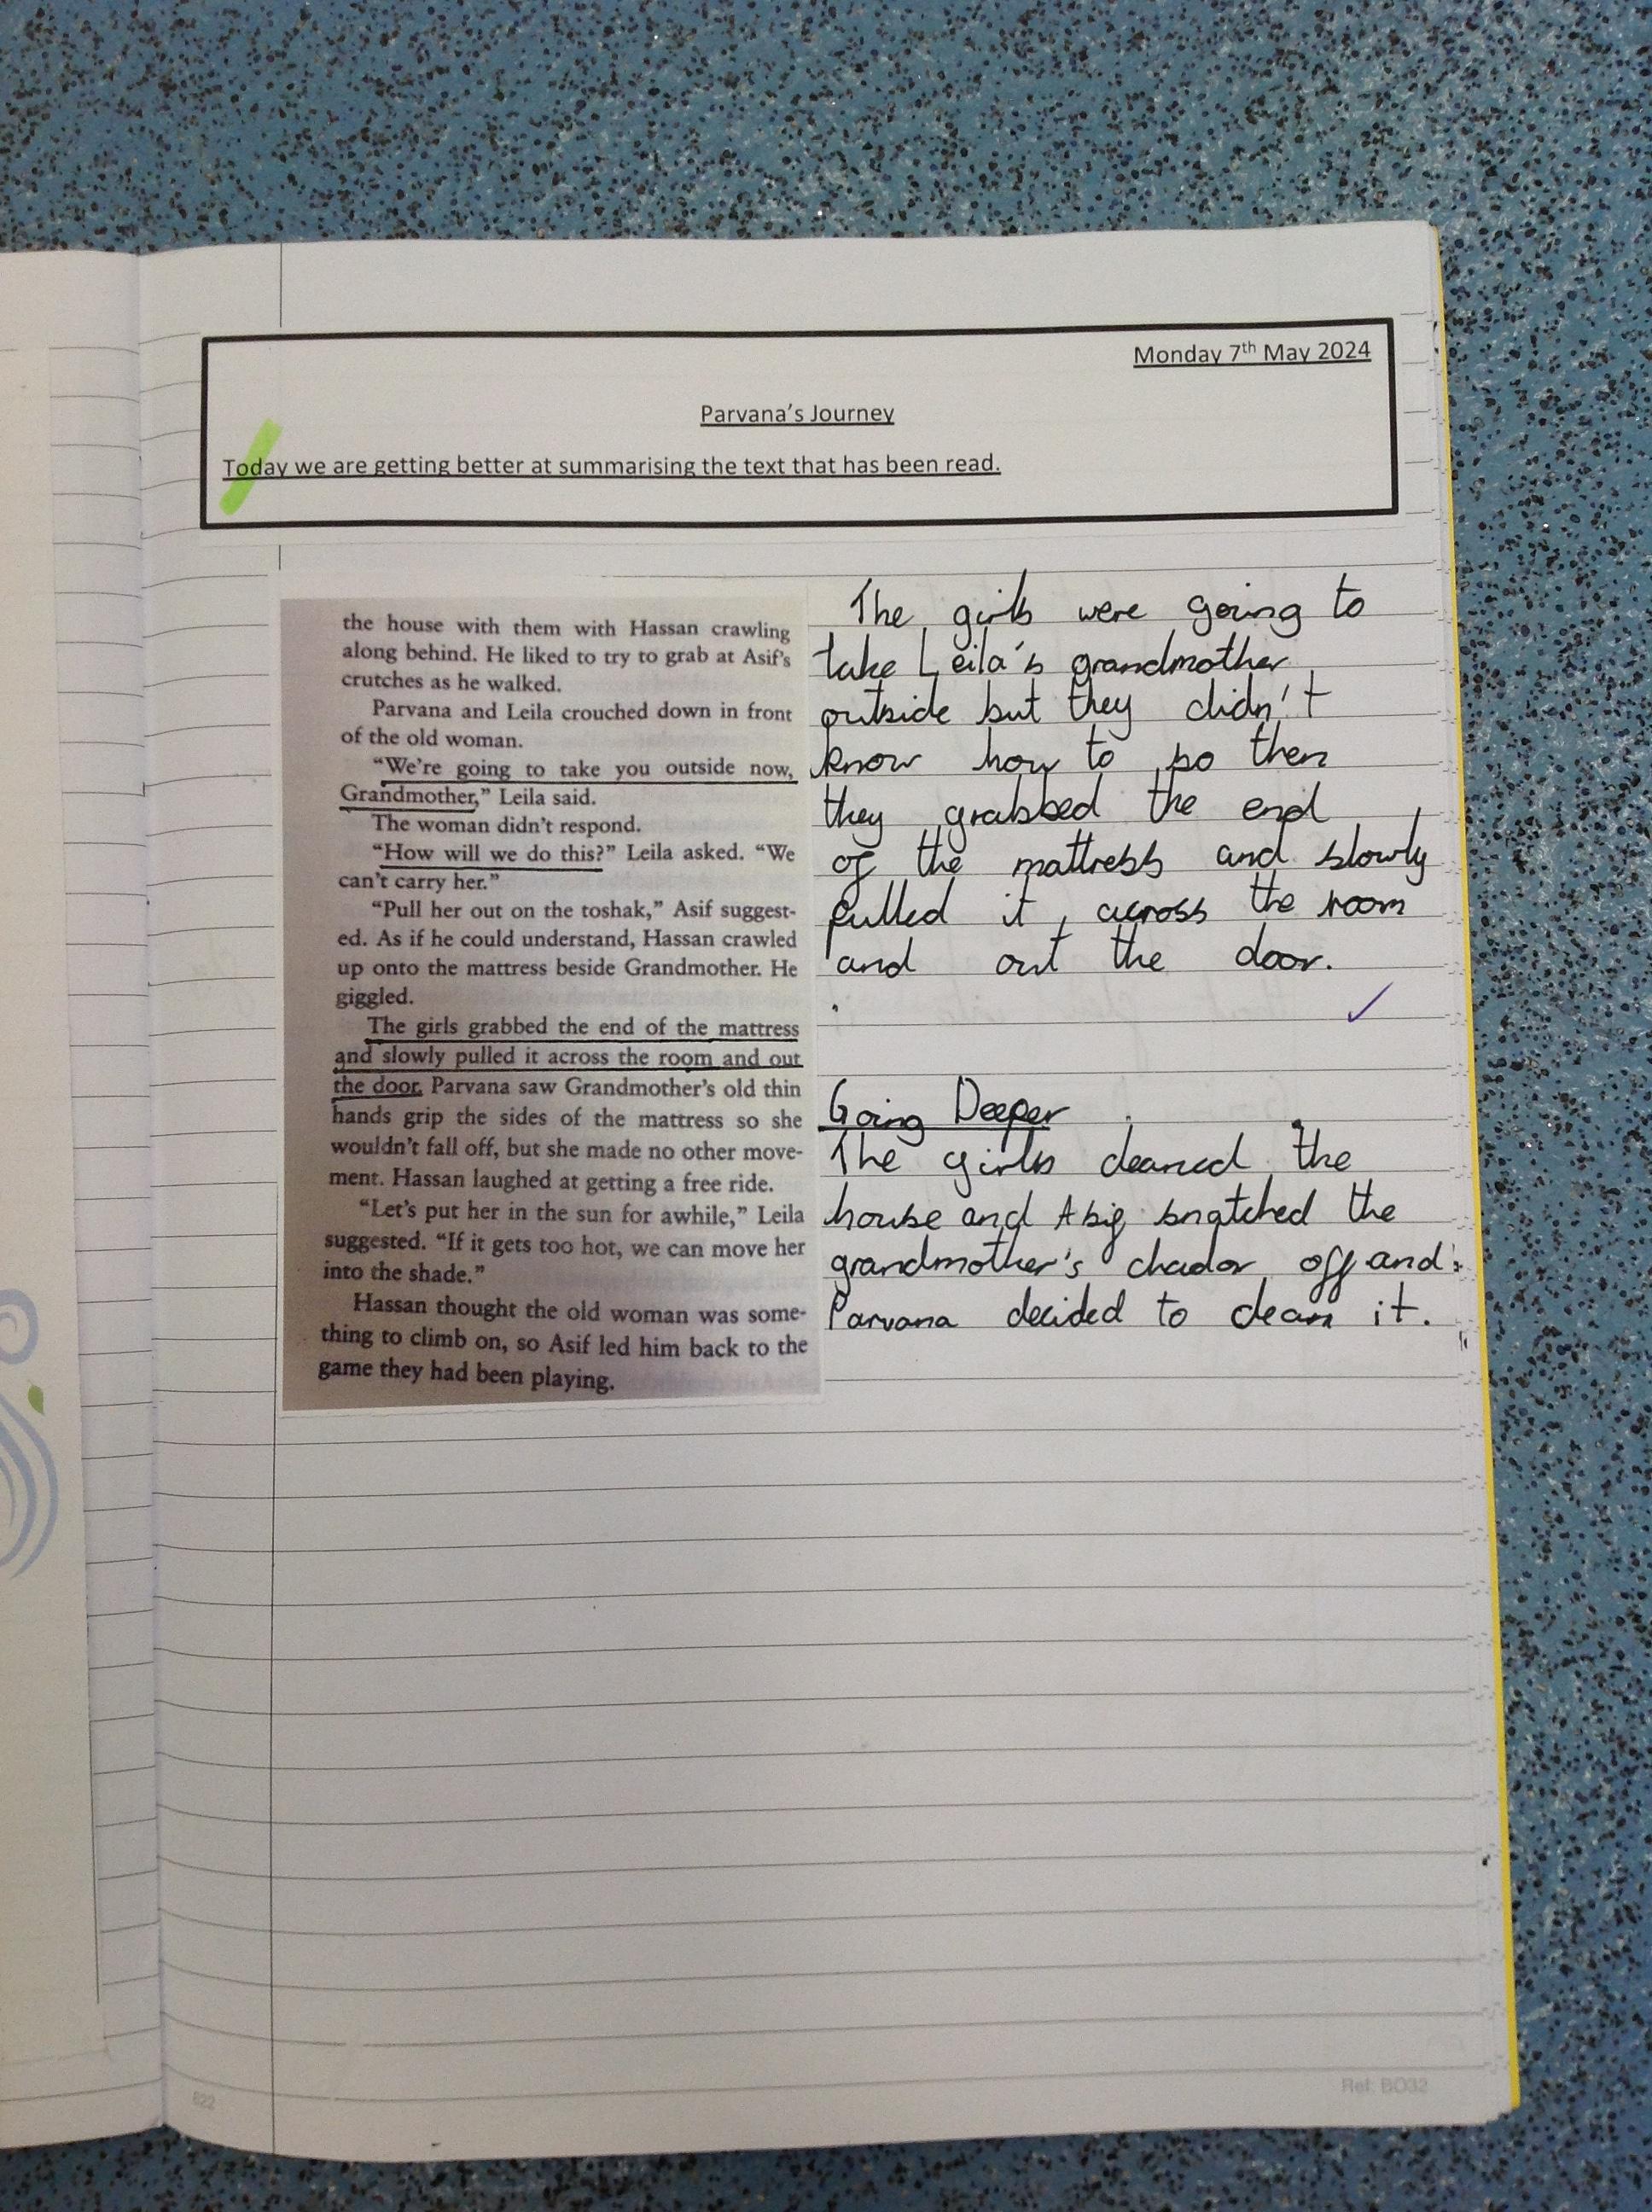 Monday 7th May 2024
Parvana's Journey
Today we are getting better at summarising the text that has been read.
the house with them with Hassan crawling
along behind. He liked to try to grab at Asif's
crutches as he walked.
Parvana and Leila crouched down in front
of the old woman.
"We're going to take you outside now,
Grandmother," Leila said.
The woman didn't respond.
"How will we do this?" Leila asked. "We
can't carry her."
"Pull her out on the toshak," Asif suggest-
ed. As if he could understand, Hassan crawled
up onto the mattress beside Grandmother. He
giggled.
The girls grabbed the end of the mattress
and slowly pulled it across the room and out
the door. Parvana saw Grandmother's old thin
hands grip the sides of the mattress so she
wouldn't fall off, but she made no other move-
ment. Hassan laughed at getting a free ride.
"Let's put her in the sun for awhile," Leila
suggested. "If it gets too hot, we can move her
into the shade."
Hassan thought the old woman was some-
thing to climb on, so Asif led him back to the
game they had been playing.
The girls were going to
take Leila's grandmother
outside but they didn't
know how to so then
they grabbed the end
of the mattress and slowly
pulled it, across the room
and out the door.
Going Deeper
The girls cleaned the
house and Asif snatched the
grandmother's chador off and
Parvana decided to clean it.
822
Ref: BO32